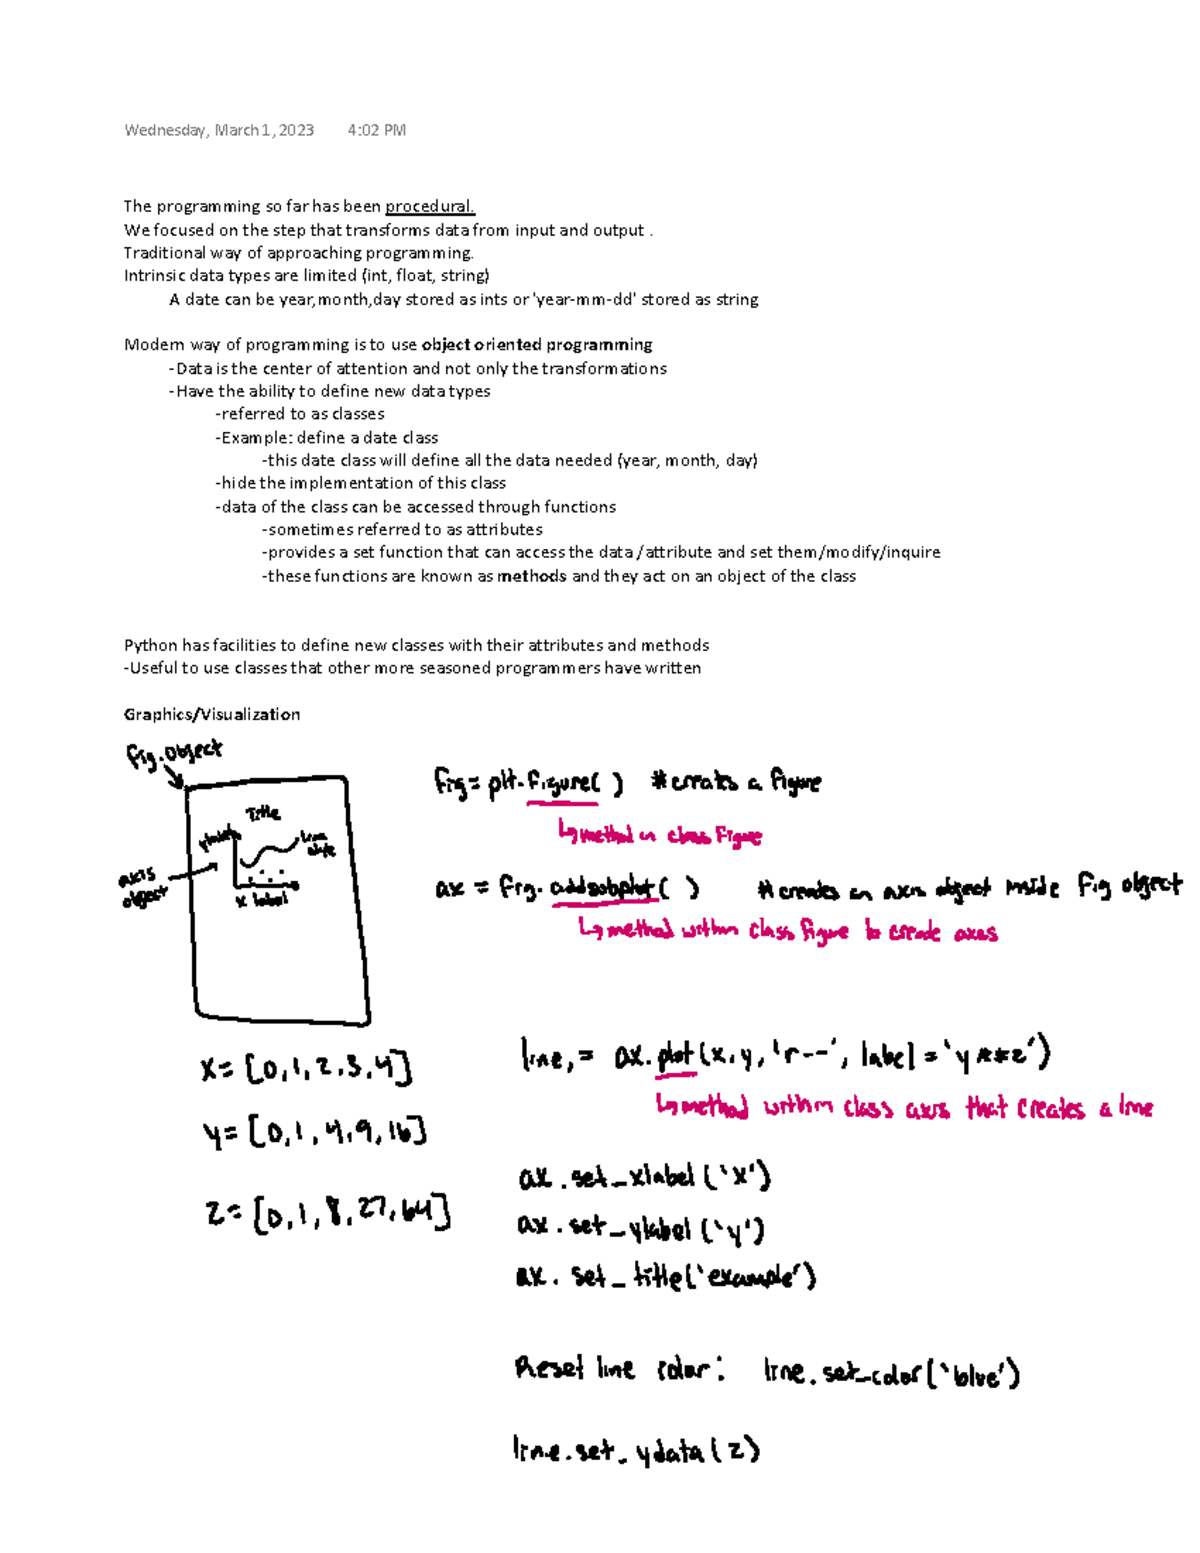 Wednesday, March 1, 2023 4:02 PM
The programming so far has been procedural.
We focused on the step that transforms data from input and output .
Traditional way of approaching programming.
Intrinsic data types are limited (int, float, string)
A date can be year,month,day stored as ints or 'year-mm-dd' stored as string
Modern way of programming is to use object oriented programming
-Data is the center of attention and not only the transformations
-Have the ability to define new data types
-referred to as classes
-Example: define a date class
-this date class will define all the data needed (year, month, day)
-hide the implementation of this class
-data of the class can be accessed through functions
-sometimes referred to as attributes
-provides a set function that can access the data /attribute and set them/modify/inquire
-these functions are known as methods and they act on an object of the class
Python has facilities to define new classes with their attributes and methods
-Useful to use classes that other more seasoned programmers have written
Graphics/Visualization
fig.object
Title
ylabel
line
axis
object
x label
fig= plt.figure( ) # creats a figure
↳method in class Figure
ax = fig.addsubplot( ) # creates an axis object inside fig object
↳method within class figure to create axes
x= [0,1,2,3,4]
y= [0,1,4,9,16]
z= [0,1,8,27,64]
line,= ax.plot(x,y,'r--', label='y**2')
↳method within class axis that creates a line
ax.set_xlabel('x')
ax.set_ylabel('y')
ax.set_title('example')
Reset line color: line.set_color('blue')
line.set_ydata(z)